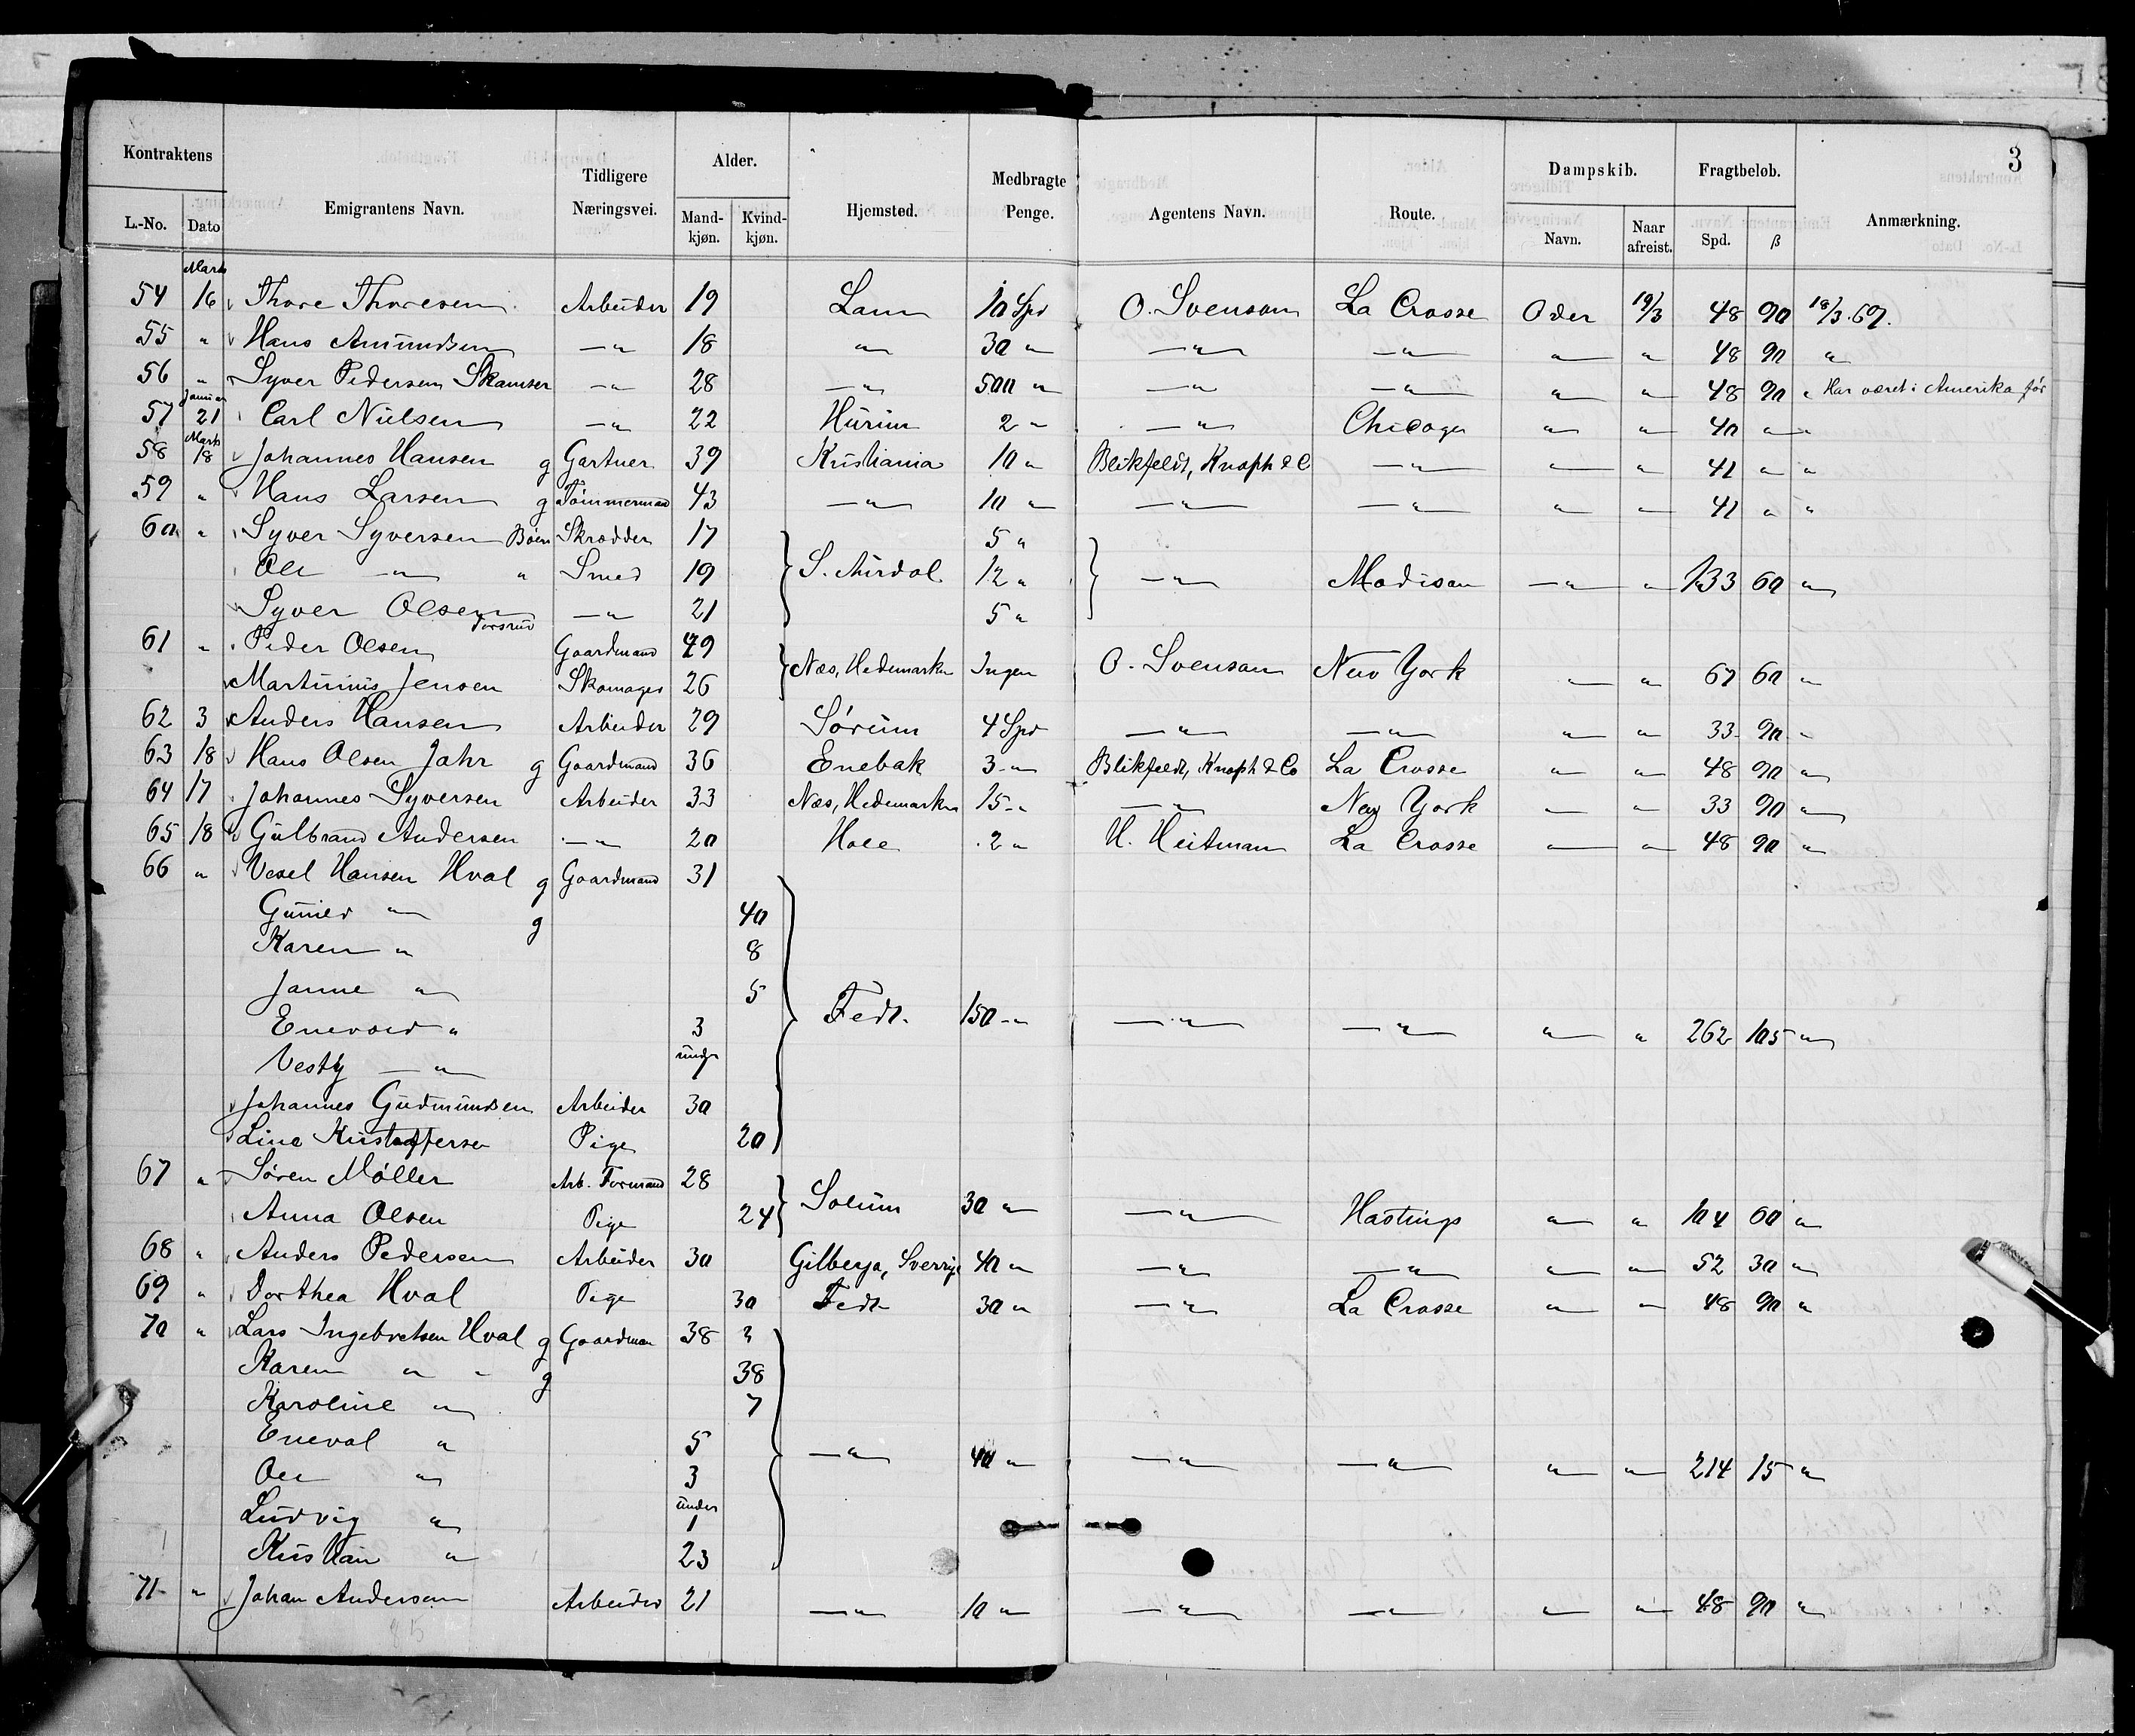 3
Kontraktens Emigrantens Navn. Tidligere Næringsvei. Alder. Hjemsted. Medbragte Penge. Agentens Navn. Route. Dampskib. Fragtbeløb. Anmærkning.
L.-No. Dato Mandkjøn. Kvindkjøn. Navn. Naar afreist. Spd. ß
54 Marts 16 Thore Thoresen Arbeider 19 Lom 10 Spd O. Svenson La Crosse Oder 19/3 48 90 18/3.69.
55 " Hans Amundsen —"— 18 " 30 " —"— —"— " " 48 90 "
56 " Syver Pedersen Skamser —"— 28 —"— 500 " —"— —"— " " 48 90 " Har været i Amerika før
57 Januar 21 Carl Nielsen —"— 22 Hurum 2 " —"— Chicago " " 40 " "
58 Marts 18 Johannes Hansen g Gartner 39 Kristiania 10 " Blikfeldt, Knoph & C —"— " " 41 " "
59 " Hans Larsen g Tømmermand 43 —"— 10 " —"— —"— " " 41 " "
60 " Syver Syversen Bøen Skrædder 17 5 "
Ole —"— " Smed 19 S. Aurdal 12 " —"— Madison —"— " 133 60 "
Syver Olsen —"— 21 5 "
61 " Peder Olsen Forsrud Gaardmand 49
Martinius Jensen Skomager 26 Næs, Hedemarken Ingen O. Svenson New York " " 67 60 "
62 3 Anders Hansen Arbeider 29 Sørum 4 Spd —"— —"— " " 33 90 "
63 18 Hans Olsen Jahr g Gaardmand 36 Enebak 3 " Blikfeldt, Knoph & Co La Crosse " " 48 90 "
64 17 Johannes Syversen Arbeider 33 Næs, Hedemarken 15 " —"— New York " " 33 90 "
65 18 Gulbrand Andersen —"— 20 Hole 2 " H. Heitman La Crosse " " 48 90 "
66 " Vesel Hansen Hval g Gaardmand 31
Gunild " g 40
Karen " 8
Janne " 5
Enevold " 3 Fedt 150 " —"— —"— " " 262 105 "
Vestly —"— under 1
Johannes Gudmundsen Arbeider 30
Lina Kristoffersen Pige 20
67 " Søren Møller Arb. Formand 28
Anna Olsen Pige 24 Solum 30 " —"— Hastings " " 104 60 "
68 " Anders Pedersen Arbeider 30 Gilberga, Sverrige 40 " —"— —"— " " 52 30 "
69 " Dorthea Hval Pige 30 Fedt 30 " —"— La Crosse " " 48 90 "
70 " Lars Ingebretsen Hval g Gaardman 38
Karen " " g 38
Karoline " 7
Eneval " 5
Ole " 3 —"— 40 " —"— —"— " " 214 15 "
Ludvig " under 1
Kristian " 23
71 " Johan Anderson Arbeider 21 —"— 10 " —"— —"— " " 48 90 "